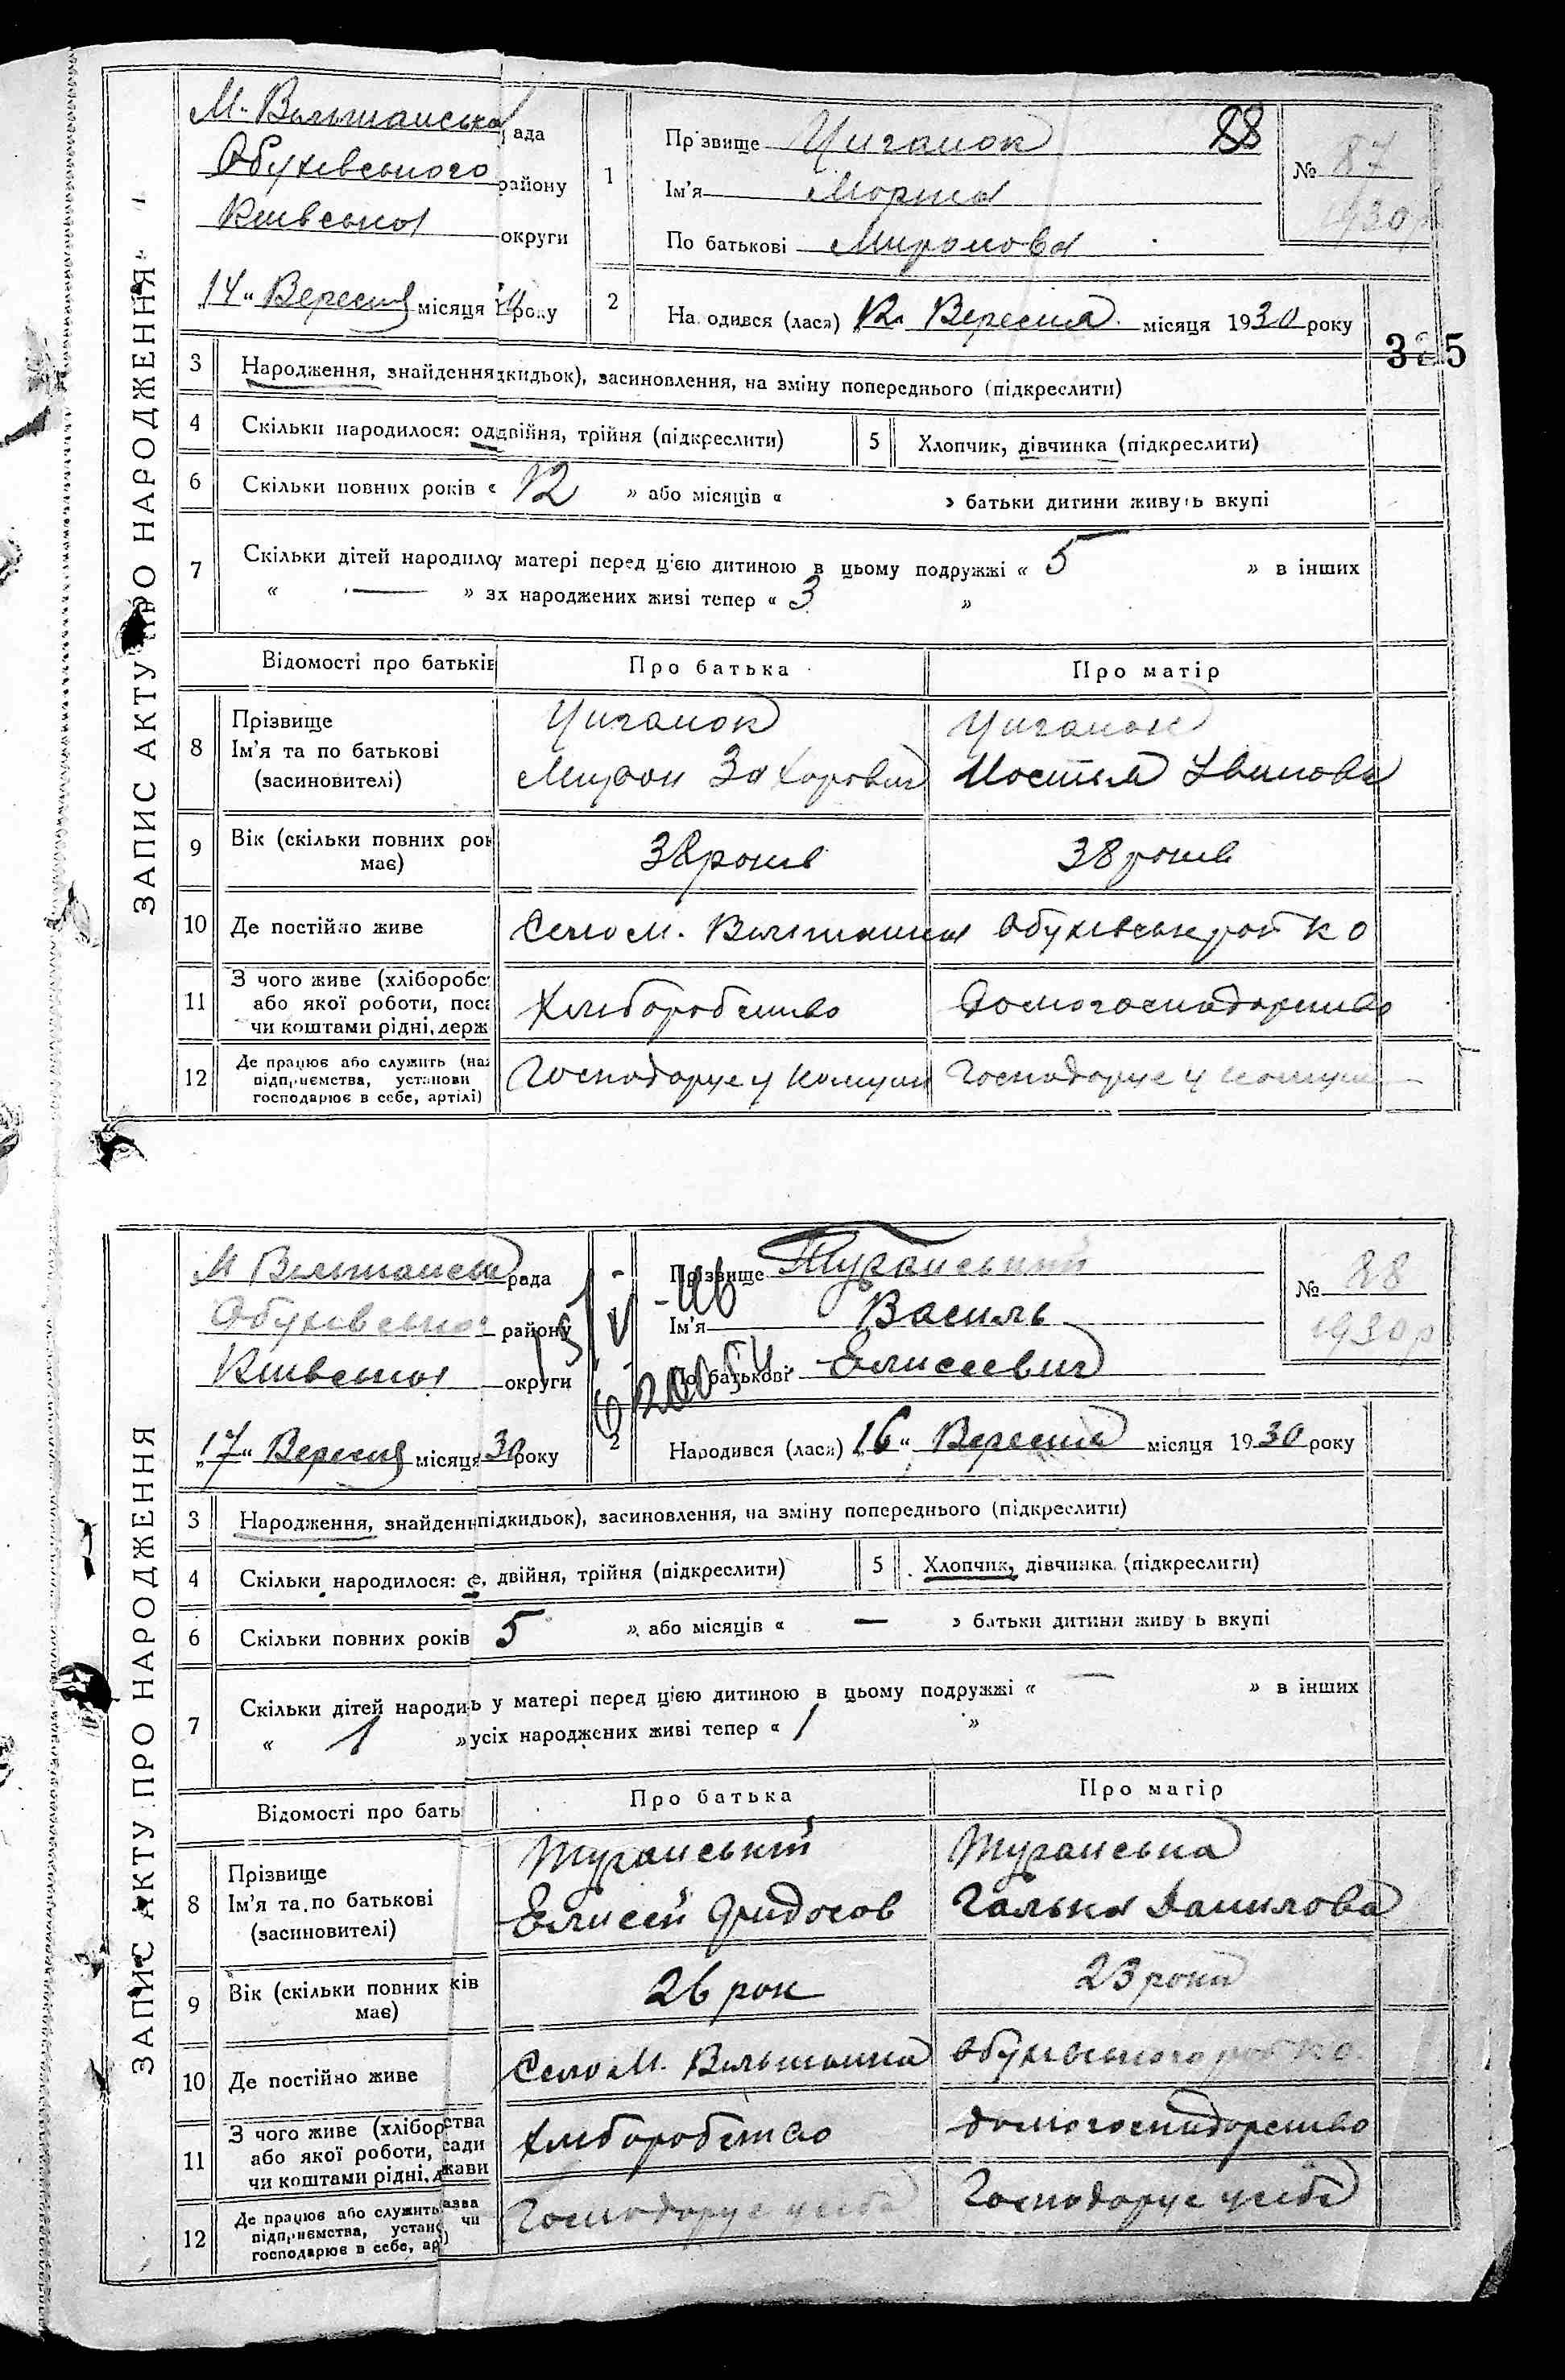 ЗАПИС АКТУ ПРО НАРОДЖЕННЯ
М. Вільшанська ада
Обухівського району
Київської округи
„14" Вересня місяця 30 року
1
Пр звище Циганок 88
Ім'я Мория
По батькові Миронова
№ 87
1930 р
2
На одився (лася) 12 Вересня місяця 1930 року
335
3 Народження, знайдення дкидьок), засиновлення, на зміну попереднього (підкреслити)
4 Скільки народилося: од двійня, трійня (підкреслити) 5 Хлопчик, дівчинка (підкреслити)
6 Скільки повних років « 12 » або місяців « » батьки дитини живу ь вкупі
7 Скільки дітей народило у матері перед цією дитиною в цьому подружжі « 5 » в інших
« — » зх народжених живі тепер « 3 »
Відомості про батьків Про батька Про матір
8 Прізвище Циганок Циганок
Ім'я та по батькові Мирон Захорович Мостья Іванова
(засиновителі)
9 Вік (скільки повних рок 38 років 38 років
має)
10 Де постійно живе Село М. Вільшанка Обухівськ рай К О
11 З чого живе (хліборобс Хліборобство Домогосподарство
або якої роботи, поса
чи коштами рідні, держ
12 Де працює або служить (наз Господорує у комуни Господорує у комуни
підприємства, установи
господарює в себе, артілі)
ЗАПИС АКТУ ПРО НАРОДЖЕННЯ
М Вільшанська рада
Обухівського району
Київської округи
„17" Вересня місяця 30 року
Прізвище Журанський
Ім'я Василь
По батькові Єлисеевич
№ 88
1930 р
2
Народився (лася) 16" Вересня місяця 1930 року
3 Народження, знайденн підкидьок), засиновлення, на зміну попереднього (підкреслити)
4 Скільки народилося: о, двійня, трійня (підкреслити) 5 Хлопчик, дівчинка (підкреслити)
6 Скільки повних років 5 » або місяців « — » батьки дитини живу ь вкупі
7 Скільки дітей народиь у матері перед цією дитиною в цьому подружжі « — » в інших
« 1 » усіх народжених живі тепер « 1 »
Відомості про бать Про батька Про матір
8 Прізвище Журанський Журанська
Ім'я та по батькові Єлисей Фидосов Галька Данилова
(засиновителі)
9 Вік (скільки повних ків 26 рок 23 роки
має)
10 Де постійно живе Село М. Вільшанка Обухівського рай К О
11 З чого живе (хлібор ства Хліборобство домогосподорство
або якої роботи, сади
чи коштами рідні, д жави
12 Де працює або служить азва Господорує у себе Господорує у себе
підприємства, устано чи
господарює в себе, ар )